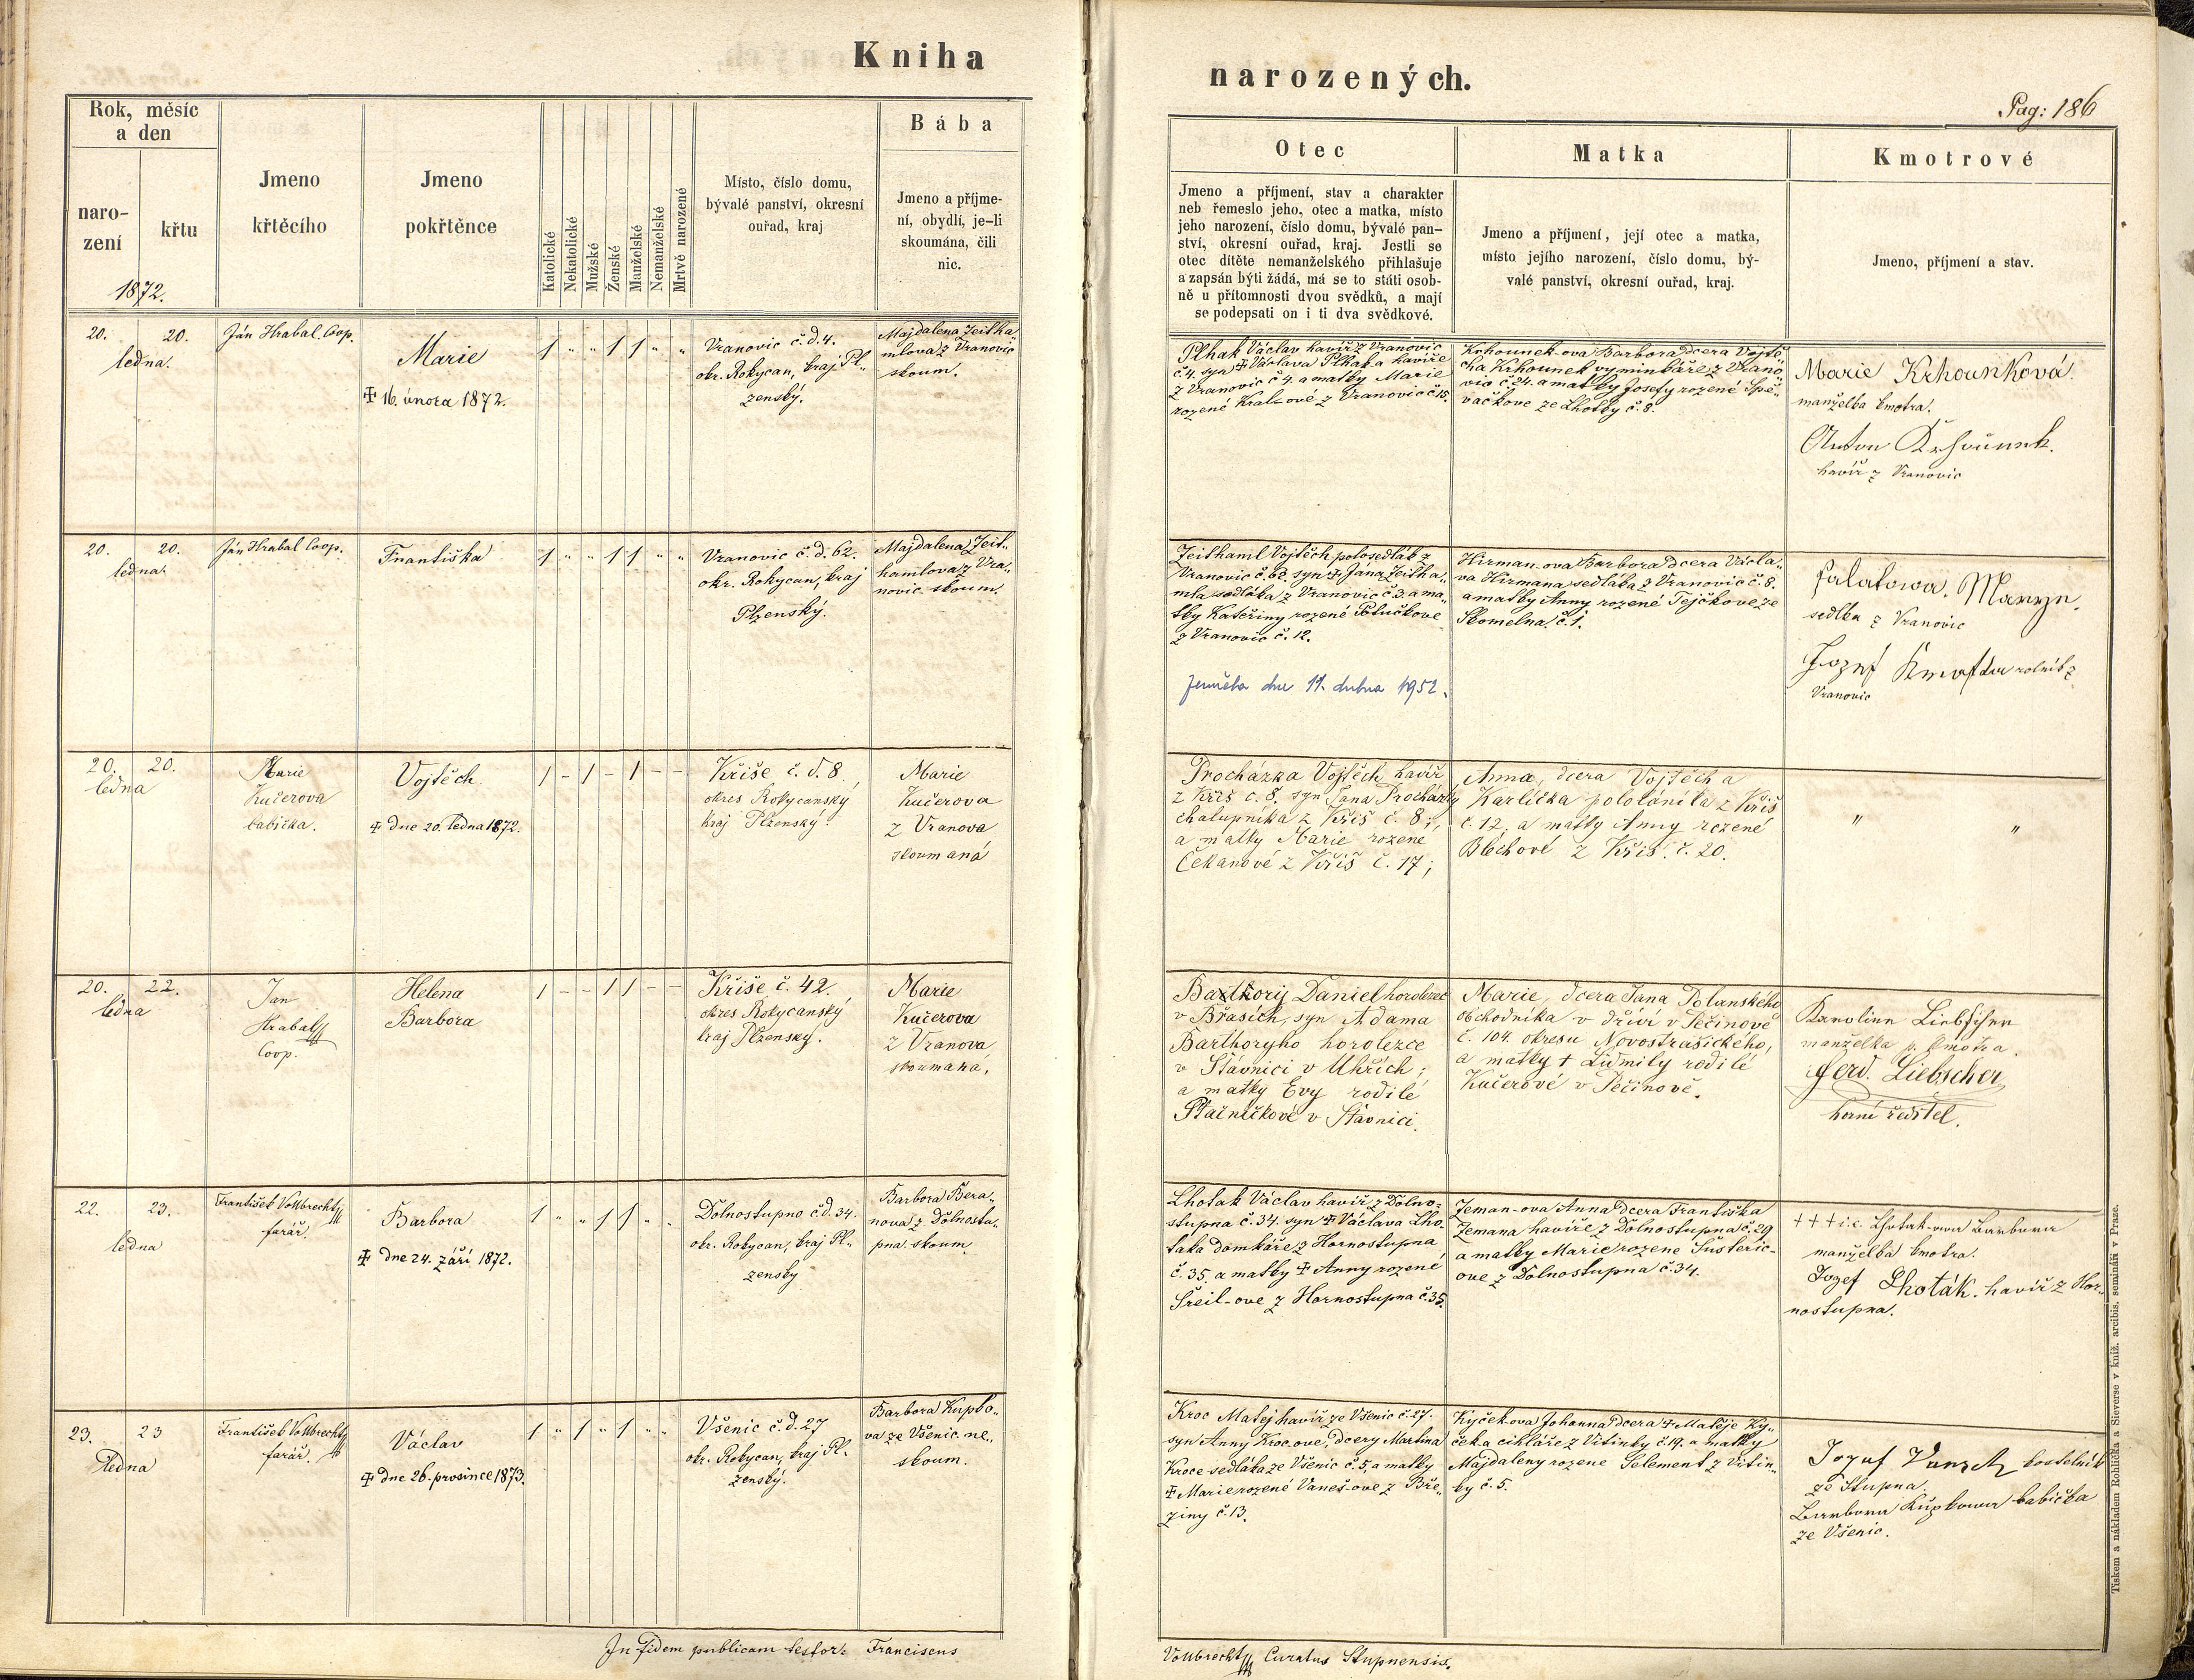 Kniha
narozených.
Pag: 186
Rok, měsíc
a den
naro-
zení
křtu
1872.
Jmeno
křtěcího
Jmeno
pokřtěnce
Katolické
Nekatolické
Mužské
Ženské
Manželské
Nemanželské
Mrtvě narozené
Místo, číslo domu,
bývalé panství, okresní
ouřad, kraj
Bába
Jmeno a příjme-
ní, obydlí, je-li
skoumána, čili
nic.
Otec
Jmeno a příjmení, stav a charakter
neb řemeslo jeho, otec a matka, místo
jeho narození, číslo domu, bývalé pan-
ství, okresní ouřad, kraj. Jestli se
otec dítěte nemanželského přihlašuje
a zapsán býti žádá, má se to státi osob-
ně u přítomnosti dvou svědků, a mají
se podepsati on i ti dva svědkové.
Matka
Jmeno a příjmení, její otec a matka,
místo jejího narození, číslo domu, bý-
valé panství, okresní ouřad, kraj.
Kmotrové
Jmeno, příjmení a stav.
20. 20.
ledna.
Ján Hrabal Coop.
Marie
✝ 16. února 1872.
1 " " 1 1 " "
Vranovic č. d. 4.
okr. Rokycan, kraj Pl„
zenský.
Majdalena Zeitha
mlova z Vranovic
skoum.
Plhak Václav havíř z Vranovic
č. 4. syn ✝ Václava Plhaka havíře
z Vranovic č 4. a matky Marie
rozené Kralzové z Vranovic č 15.
Krhounek-ova Barbora dcera Vojtě„
cha Krhounek vyminkáře z Vrano„
vic č. 24. a matky Josefy rozené Spě„
vačkove ze Lhotky č. 8.
Marie Krhounková
manželka kmotra.
Anton Krhounek.
havíř z Vranovic
20. 20.
ledna.
Ján Hrabal Coop.
Františka
1 " " 1 1 " "
Vranovic č. d. 62.
okr. Rokycan, kraj
Plzenský.
Majdalena Zeit„
hamlova z Vra„
novic skoum.
Zeithaml Vojtěch polosedlák z
Vranovic č. 62. syn ✝ Jána Zeitha„
mla sedláka z Vranovic č 3. a ma„
tky Kateřiny rozené Potučkove
z Vranovic č. 12.
zemřela dne 11. dubna 1952.
Hirman-ova Barbora dcera Václa„
va Hirmana sedláka z Vranovic č. 8.
a matky Anny rozené Tejčkove ze
Skomelna. č. 1.
Falatowa. Maryn.
sedlka z Vranovic
Jozef rolník z
Vranovic
20. 20.
ledna
Marie
Kučerova
babička.
Vojtěch
✝ dne 20. ledna 1872.
1 - 1 - 1 - -
Kříše č. d. 8
okres Rokycanský
kraj Plzenský.
Marie
Kučerova
z Vranova
skoumaná
Procházka Vojtěch havíř
z Kříš č. 8. syn Jana Procházky
chalupníka z Kříš č. 8;
a matky Marie rozené
Čekanové z Kříš č. 17;
Anna, dcera Vojtěch a
Karlíčka pololáníka z Kříš
č. 12; a matky Anny rozené
Blechové z Kříš. č. 20.
" "
20. 22.
ledna
Jan
Hrabal
Coop.
Helena
Barbora
1 - - 1 1 - -
Kříše č. 42.
okres Rokycanský
kraj Plzenský.
Marie
Kučerova
z Vranova
skoumaná.
Bartkorij Daniel horolezec
v Břasích, syn Adama
Barthoryho horolezce
v Šťávnici v Uhřích;
a matky Evy rodilé
Ptačničkové v Šťávnici.
Marie, dcera Jana Polanského
obchodníka v dříví v Pečinově
č. 104. okresu Novostrašického,
a matky ✝ Lidmily rodilé
Kučerové v Pečinově.
Karoline Liebscher
manželka p. kmotra.
Ferd. Liebscher
horní ředitel.
22. 23.
ledna
František Vollbrecht
farář.
Barbora
✝ dne 24. září 1872.
1 " " 1 1 " "
Dolnostupno č. d. 34.
okr. Rokycan, kraj Pl„
zenský
Barbora Bera„
nova z Dolnostu„
pna. skoum.
Lhotak Václav havíř z Dolno-
stupna č. 34. syn ✝ Václava Lho„
taka domkáře z Hornostupna
č. 35. a matky ✝ Anny rozené
Šreil-ove z Hornostupna č. 35.
Zeman-ova Anna dcera Františka
Zemana havíře z Dolnostupna č. 29
a matky Marie rozene Šusteric-
ove z Dolnostupna č. 34.
+++ i.e. Lhotak-owa Barbora
manželka kmotra.
Jozef Lhoták. havíř z Hor„
nostupna.
23. 23
ledna
František Vollbrecht
farář.
Václav
✝ dne 26. prosince 1873.
1 " 1 " 1 " "
Všenic č. d. 27
okr. Rokycan, kraj Pl.
zenský.
Barbora Kupko„
va ze Všenic ne„
skoum.
Kroc Matej havíř ze Všenic č. 27.
syn Anny Kroc-ove, dcery Martina
Kroce sedláka ze Všenic č. 5. a matky
✝ Marie rozené Vaneš-ove z Bře„
ziny č. 13.
Kyček-ova Johanna dcera ✝ Matěje Ky„
ček a cihláře z Vitinky č. 19. a matky
Majdaleny rozene Selement z Vitin„
ky č. 5.
Jozef kostelník
ze Stupna.
Barbora Kupkowa babička
ze Všenic.
In fidem publicam testor: Franciscus
Vollbrecht Curatus Stupnensis.
Tiskem a nákladem Rohlíčka a Sieverse v kníž. arcibis. semináři v Praze.